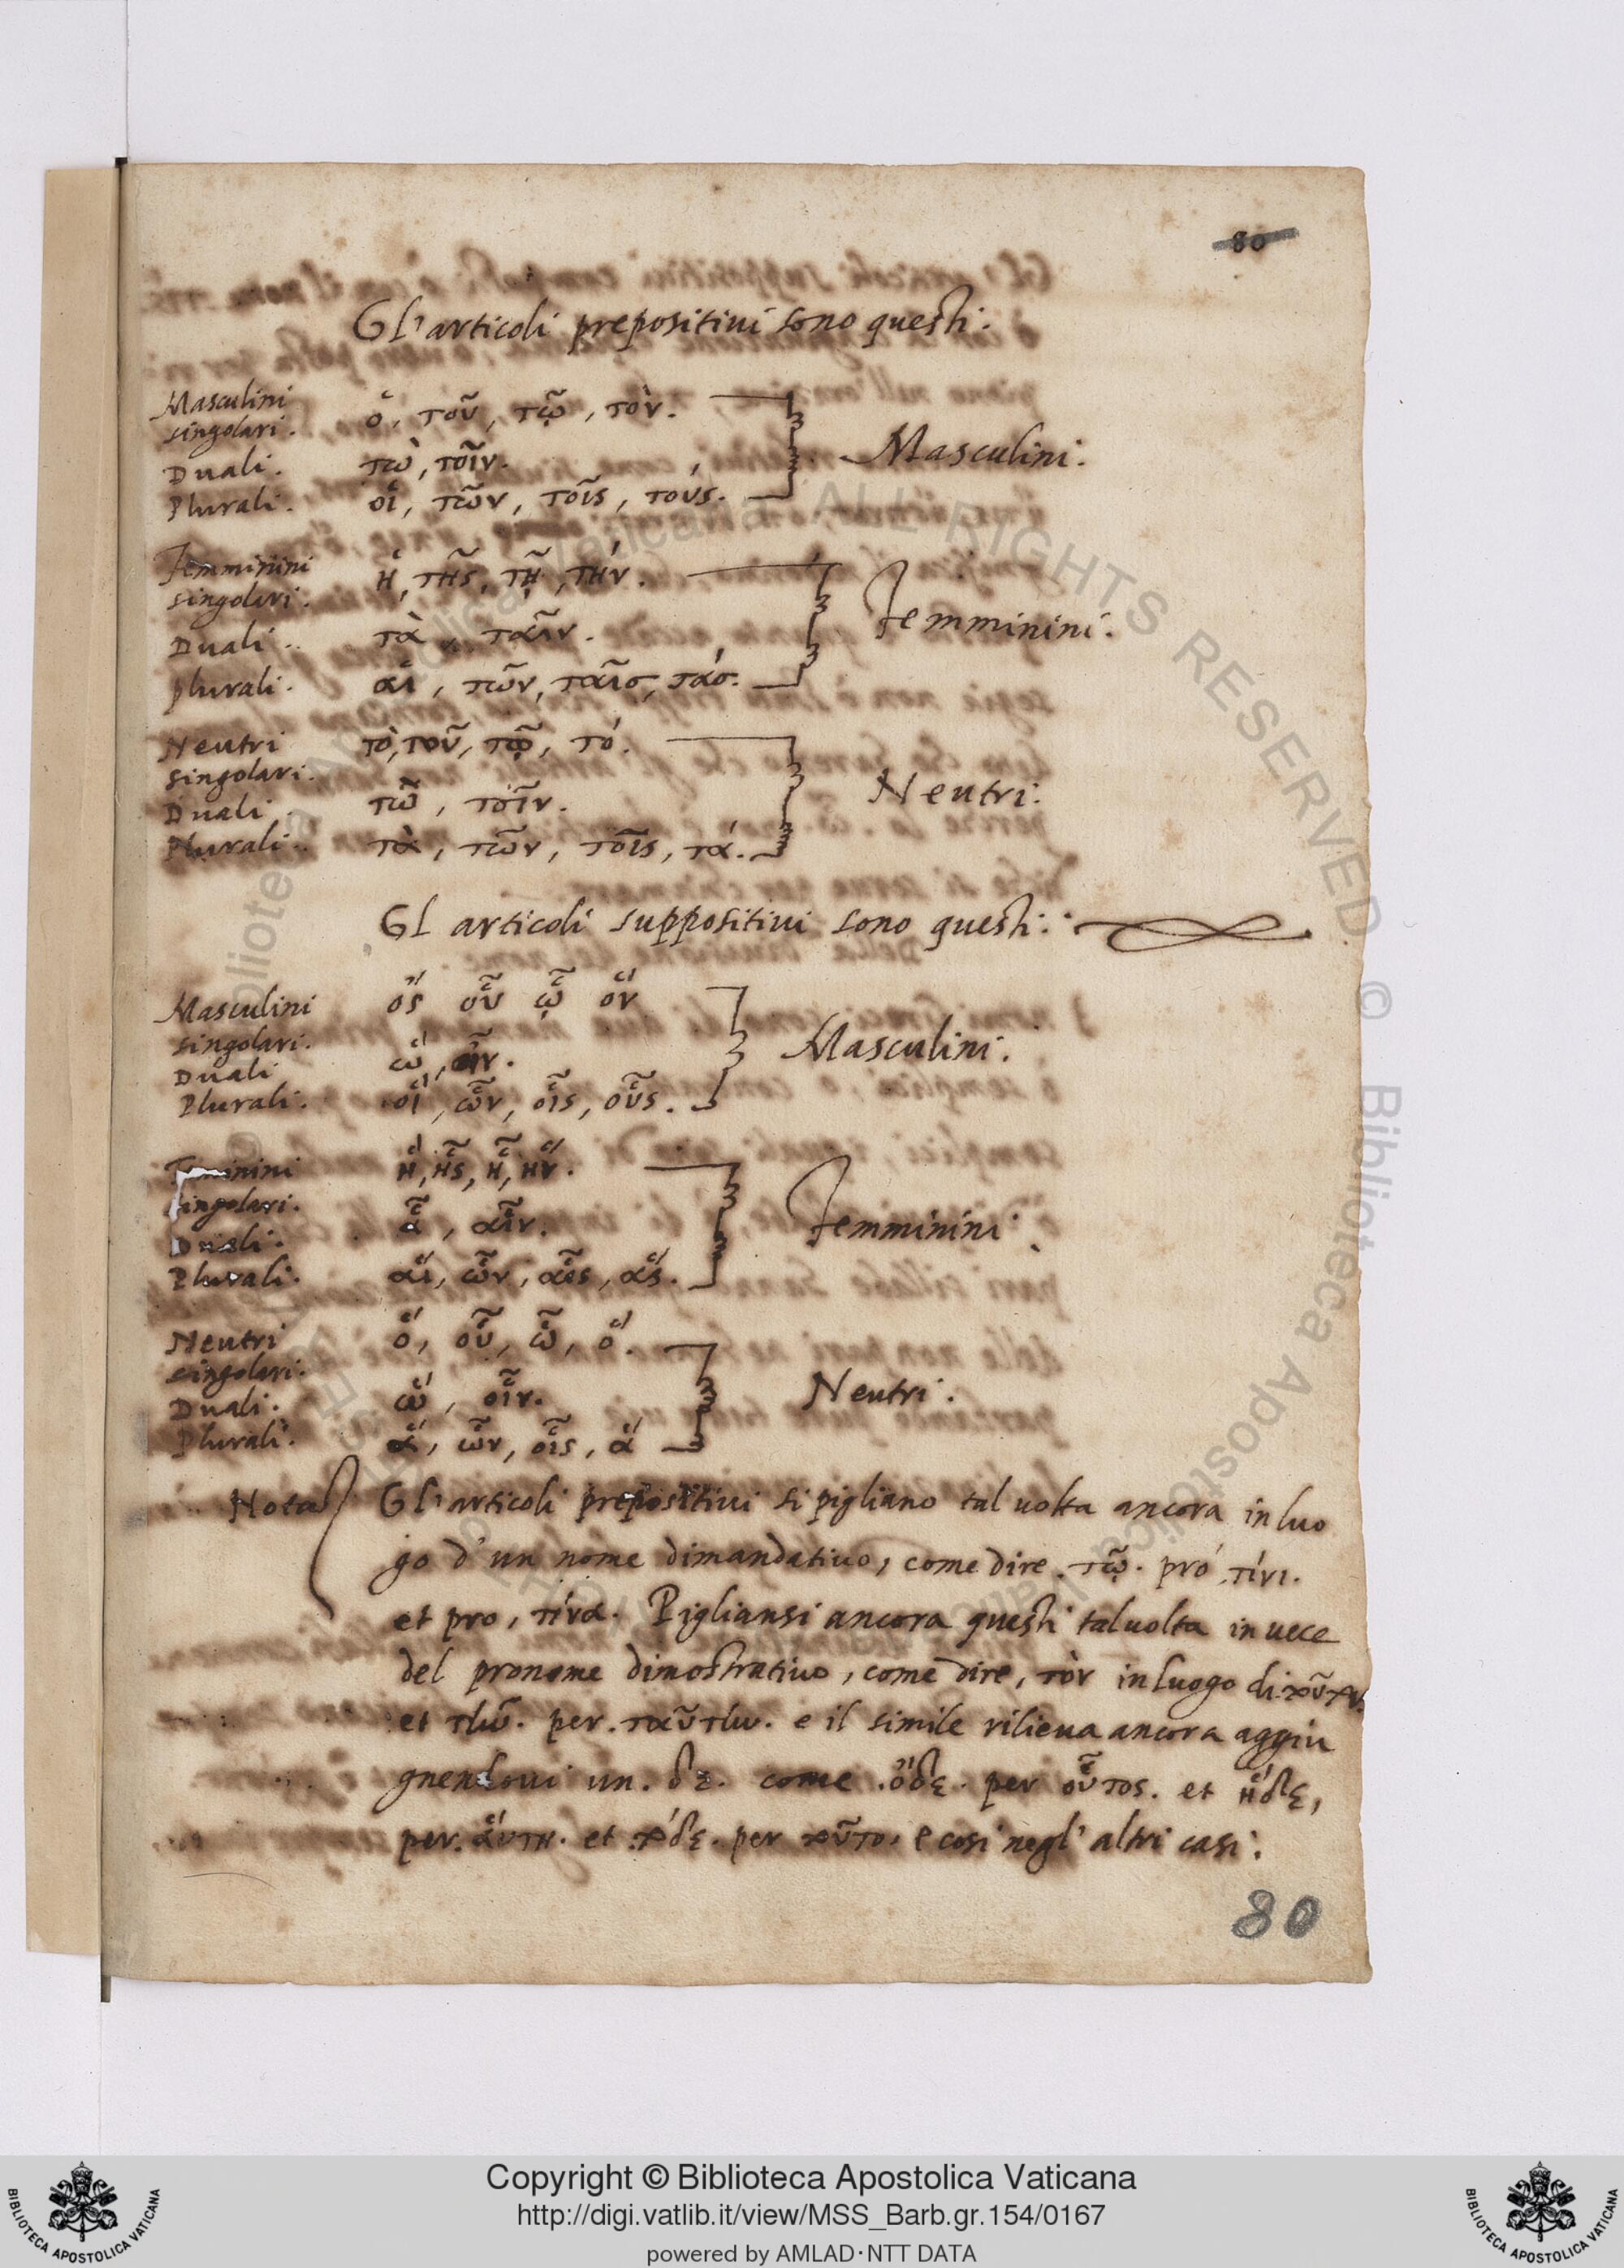 80
Gl' articoli prepositiui sono questi.
Masculini singolari. ὁ, τοῦ, τῷ, τὸν.
Duali. τὼ, τοῖν.
Plurali. οἱ, τῶν, τοῖς, τούς.
Masculini.
Femminini singolari. ἡ, τῆς, τῇ, τήν.
Duali. τὰ, ταῖν.
plurali. αἱ, τῶν, ταῖσ, τάσ.
Femminini.
Neutri singolari. τὸ, τοῦ, τῷ, τό.
Duali τῶ, τοῖν.
Plurali. τὰ, τῶν, τοῖς, τά.
Neutri.
Gl articoli suppositiui sono questi:
Masculini singolari. ὅς οὗ ᾧ ὅν
Duali ὥ, οἷν.
Plurali. οἵ, ὧν, οἷς, οὓς.
Masculini.
Feminini singolari. ἥ, ἧς, ἧ, ἥν.
Duali. ἇ, αἷν.
Plurali. αἵ, ὧν, αἷς, ἅς.
Femminini.
Neutri singolari. ὅ, οὗ, ὧ, ὅ.
Duali. ὥ, οἷν.
Plurali. ἅ, ὧν, οἷς, ἅ
Neutri.
Nota Gl' articoli prepositiui si pigliano tal uolta ancora in luo
go d' un nome dimandatiuo, come dire. τῷ. pro τίνι.
et pro, τίνα. Pigliansi ancora questi taluolta in uece
del pronome dimostratiuo, come dire, τὸν in luogo di
et τὴν. per. ταῦτην. e il simile rilieua ancora aggiu
gnendoui un. δε. come. ὅδε. per οὗτος. et ἥδε,
per. ἅυτη. et τόδε. per τοῦτο. e cosi negl' altri casi:
80
Copyright © Biblioteca Apostolica Vaticana
http://digi.vatlib.it/view/MSS_Barb.gr.154/0167
powered by AMLAD·NTT DATA
BIBLIOTECA APOSTOLICA VATICANA
BIBLIOTECA APOSTOLICA VATICANA